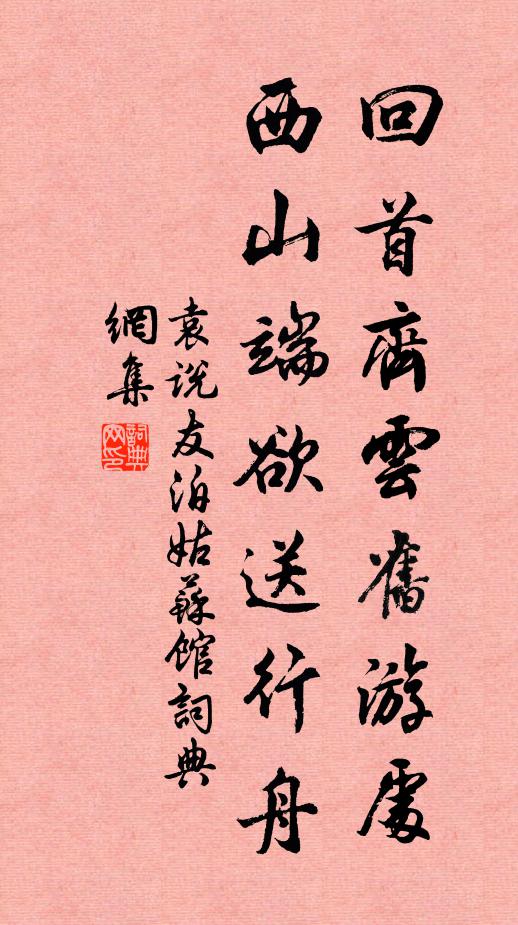 回首齊雲舊游處
西山端欲送行舟
袁說友泊姑蘇館詞典
網集
詞典网印